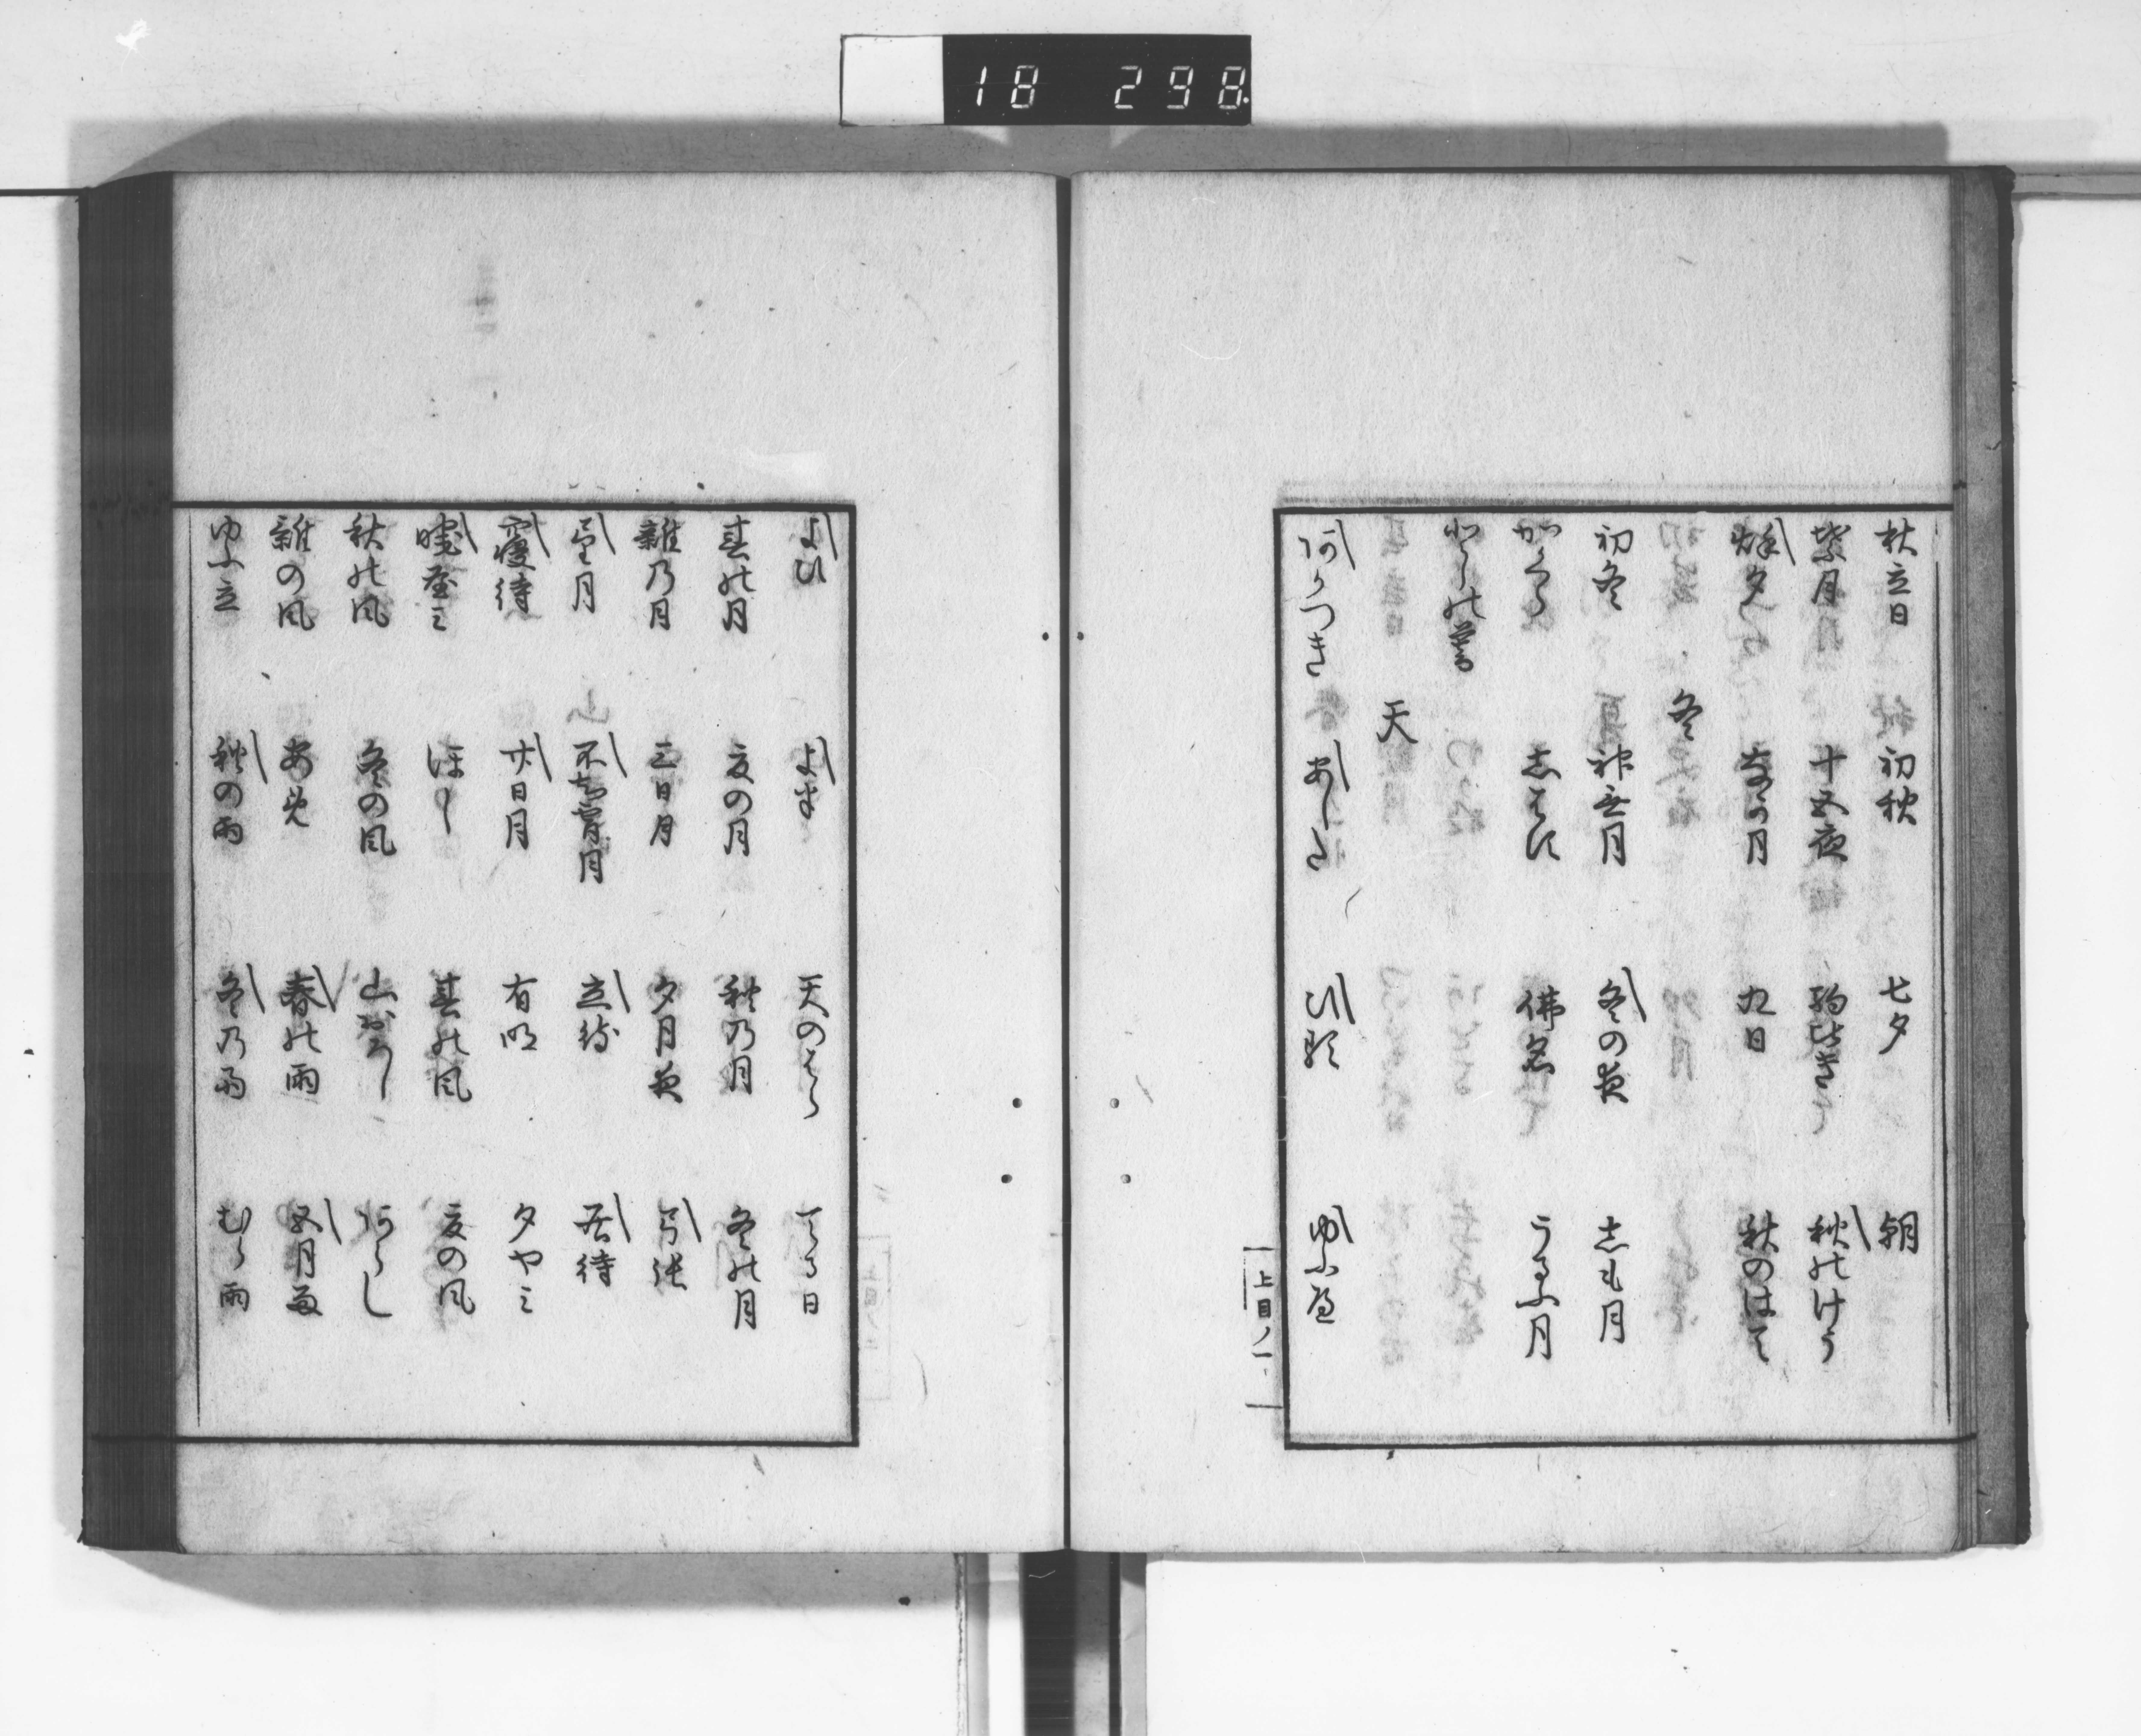 18 298
秋立日 初秋 七夕 朝
葉月 十五夜 駒ひき 秋のけう
秋夕 なか月 九日 秋のはて
冬
初冬 神無月 冬の夜 しも月
かくら しはす 佛名 うるふ月
としの暮
天
あかつき あした ひる ゆふ
上目ノ一
よひ よは 天のはら てる日
春の月 夏の月 秋乃月 冬の月
雑乃月 三日月 夕月夜 弓張
望月 不知夜月 立待 居待
寝待 廿日月 有明 夕やミ
暁やミ ほし 春の風 夏の風
秋の風 冬の風 山おろし あらし
雑の風 あめ 春の雨 五月雨
ゆふ立 秋の雨 冬乃雨 むら雨